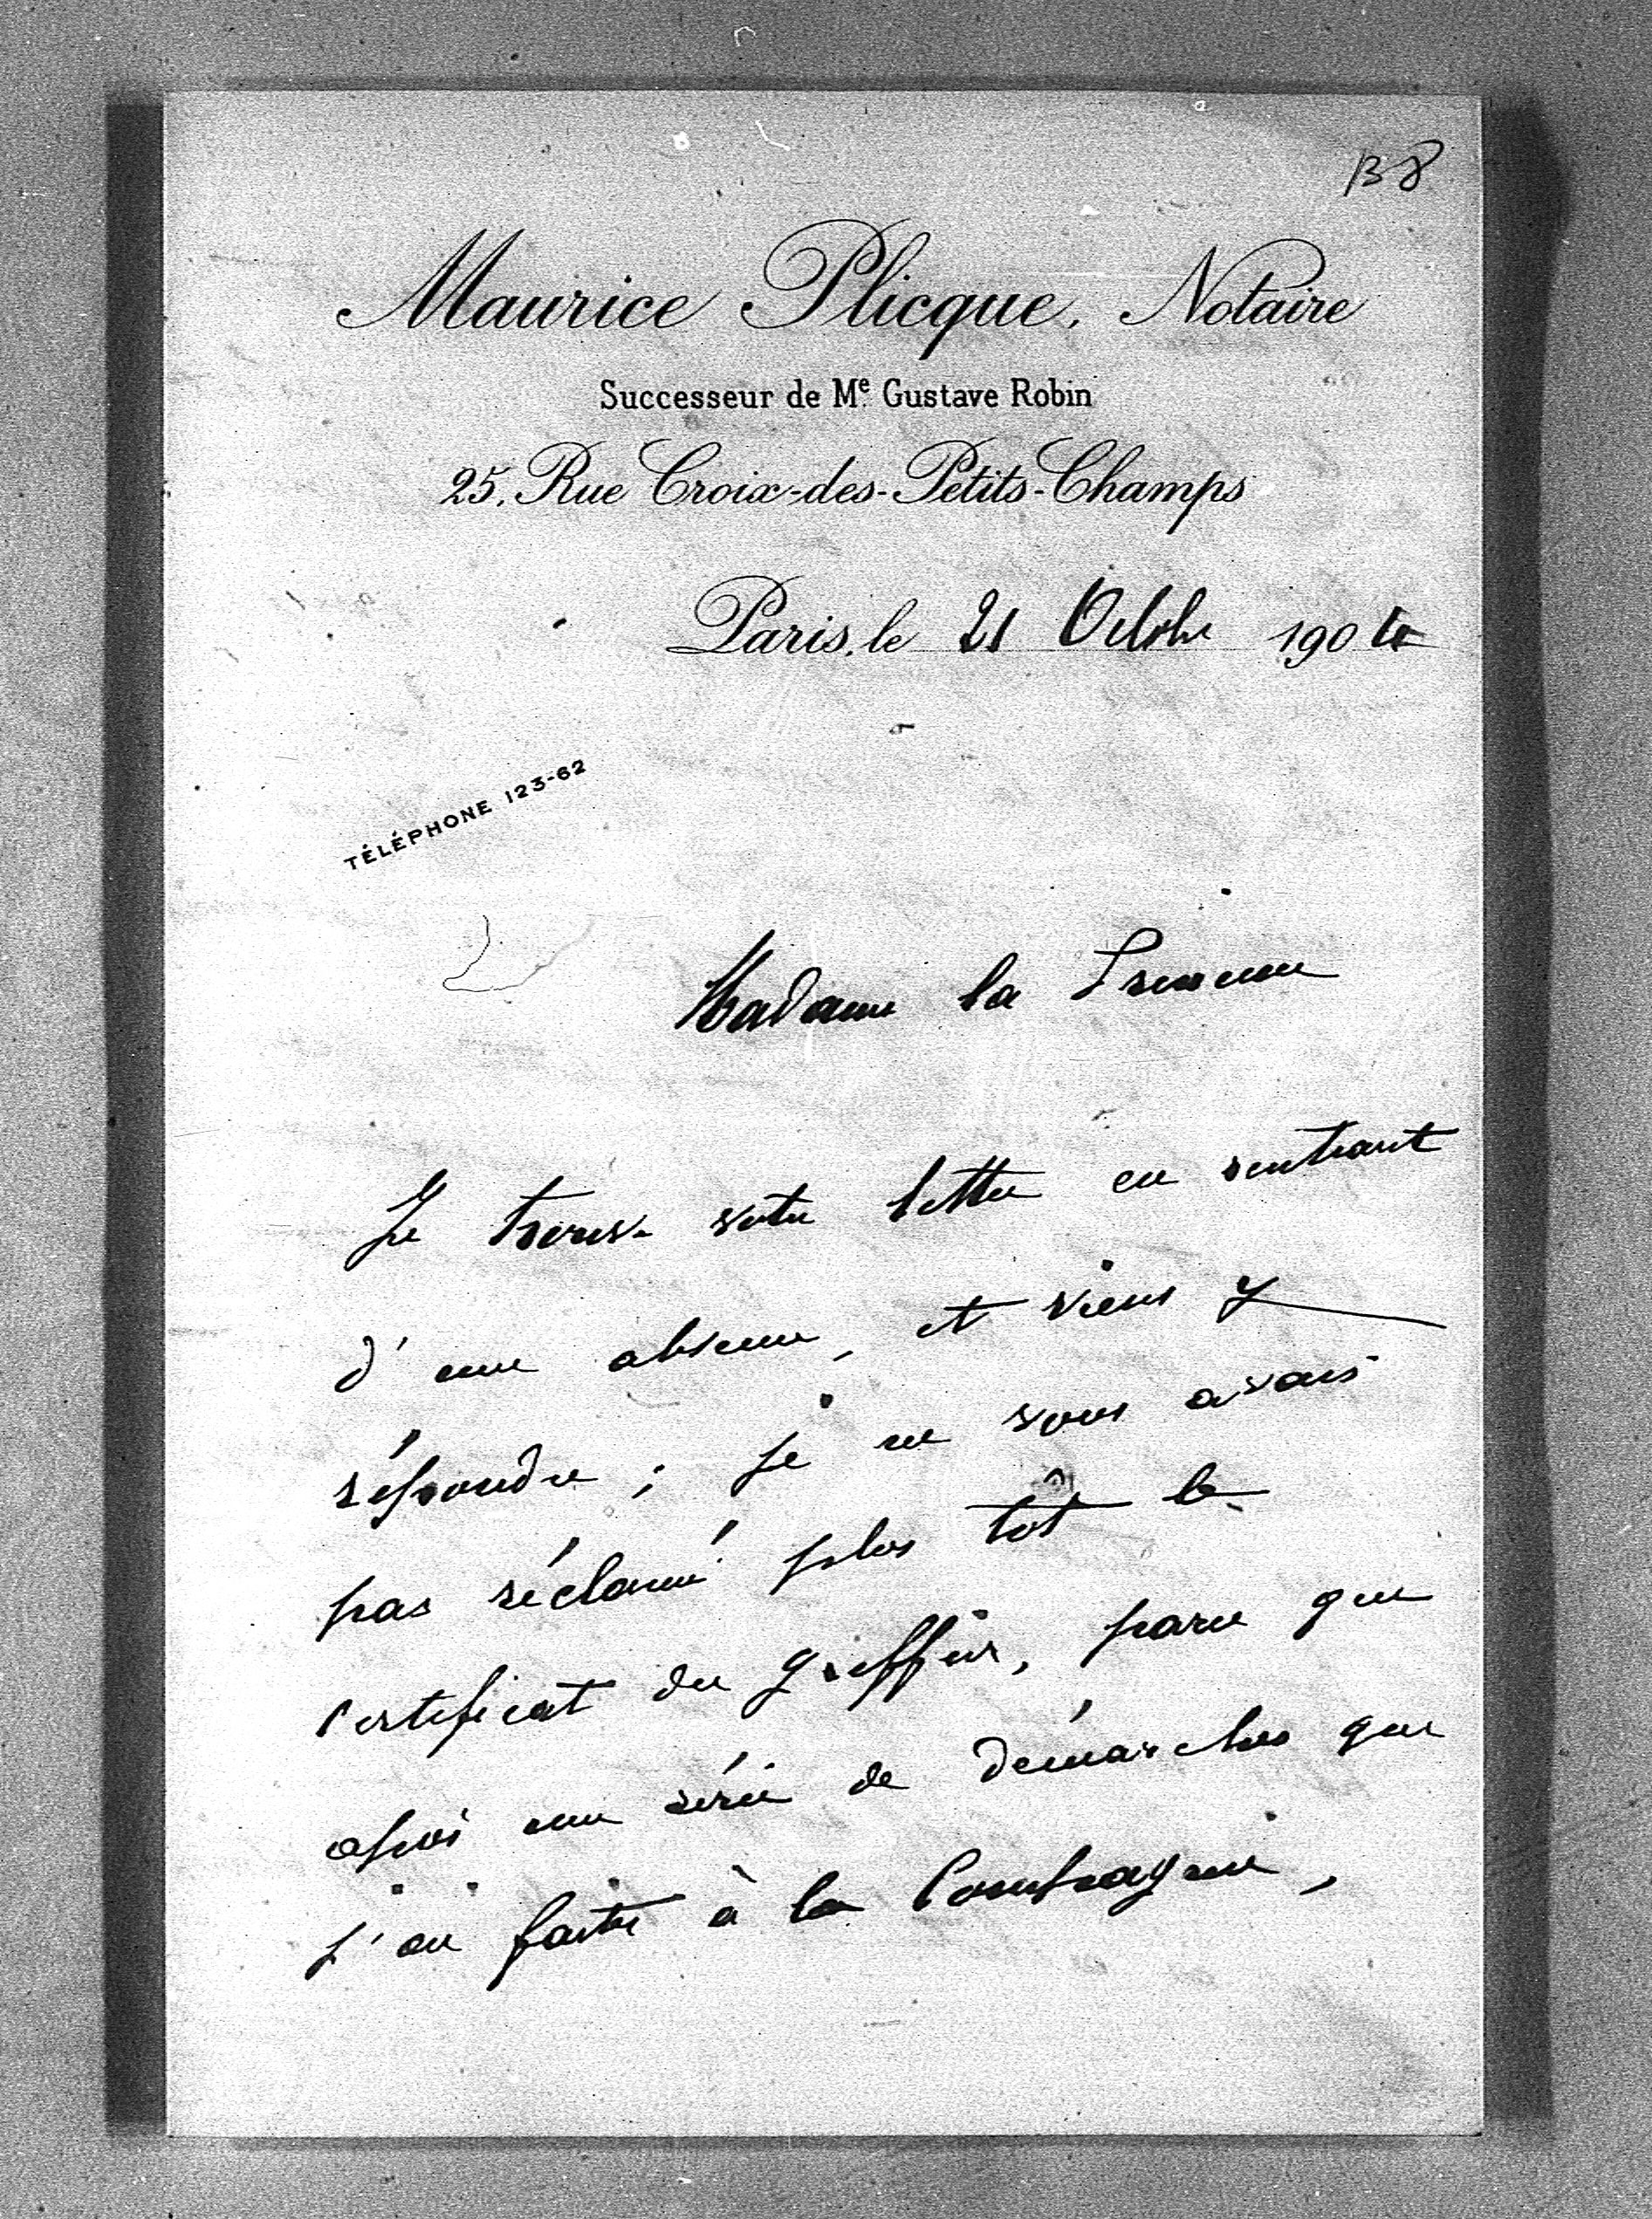 138
Maurice Plicque, Notaire
Successeur de Me Gustave Robin
25, Rue Croix-des-Petits-Champs
Paris, le 21 Octobre 1904
TÉLÉPHONE 123-62
Madame la Princesse
Je trouve votre lettre en rentrant
d'une absence, et viens y
répondre ; je ne vous avais
pas réclamé plus tôt le
certificat du greffier, parce que
après une série de démarches que
j'ai faites à la Compagnie,